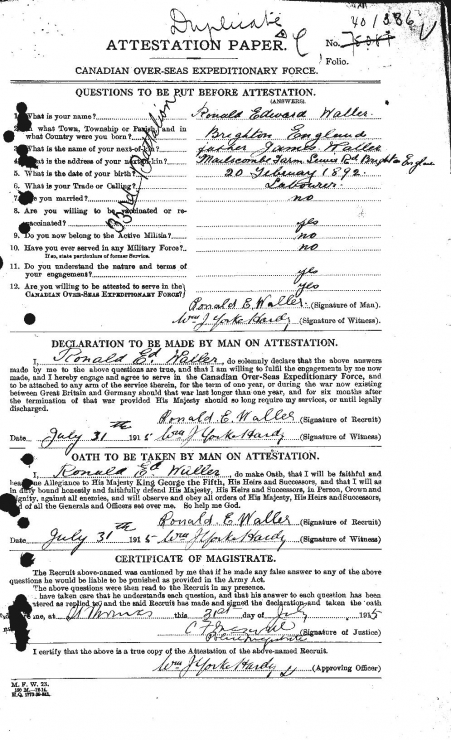 Duplicate
ATTESTATION PAPER.
No.
Folio.
CANADIAN OVER-SEAS EXPEDITIONARY FORCE.
QUESTIONS TO BE PUT BEFORE ATTESTATION.
(ANSWERS)
What is your name? Ronald Edward Waller.
In what Town, Township or Parish, and in
what Country were you born? Brighton England
What is the name of your next-of-kin? father James Waller
What is the address of your next-of-kin? Farm Lewes Rd Brighton
5. What is the date of your birth? 20 February 1892.
6. What is your Trade or Calling? Labourer.
7. Are you married? no
8. Are you willing to be vaccinated or re-
vaccinated? yes
9. Do you now belong to the Active Militia? no
10. Have you ever served in any Military Force? no
If so, state particulars of former Service.
11. Do you understand the nature and terms of
your engagement? yes
12. Are you willing to be attested to serve in the
CANADIAN OVER-SEAS EXPEDITIONARY FORCE? yes
Ronald E. Waller. (Signature of Man).
Wm J Yorke Hardy (Signature of Witness).
DECLARATION TO BE MADE BY MAN ON ATTESTATION.
I, Ronald Ed. Waller, do solemnly declare that the above answers
made by me to the above questions are true, and that I am willing to fulfil the engagements by me now
made, and I hereby engage and agree to serve in the Canadian Over-Seas Expeditionary Force, and
to be attached to any arm of the service therein, for the term of one year, or during the war now existing
between Great Britain and Germany should that war last longer than one year, and for six months after
the termination of that war provided His Majesty should so long require my services, or until legally
discharged.
Ronald E. Waller (Signature of Recruit)
Date July 31th 1915 Wm J Yorke Hardy (Signature of Witness)
OATH TO BE TAKEN BY MAN ON ATTESTATION.
I, Ronald Ed Waller, do make Oath, that I will be faithful and
bear true Allegiance to His Majesty King George the Fifth, His Heirs and Successors, and that I will as
in duty bound honestly and faithfully defend His Majesty, His Heirs and Successors, in Person, Crown and
Dignity, against all enemies, and will observe and obey all orders of His Majesty, His Heirs and Successors,
and of all the Generals and Officers set over me. So help me God.
Ronald E. Waller (Signature of Recruit)
Date July 31th 1915 Wm J Yorke Hardy (Signature of Witness)
CERTIFICATE OF MAGISTRATE.
The Recruit above-named was cautioned by me that if he made any false answer to any of the above
questions he would be liable to be punished as provided in the Army Act.
The above questions were then read to the Recruit in my presence.
I have taken care that he understands each question, and that his answer to each question has been
entered as replied to, and the said Recruit has made and signed the declaration and taken the oath
before me, at St Thomas this 31st day of July 1915
(Signature of Justice)
Police Magistrate
I certify that the above is a true copy of the Attestation of the above-named Recruit.
Wm J Yorke Hardy (Approving Officer)
M. F. W. 23.